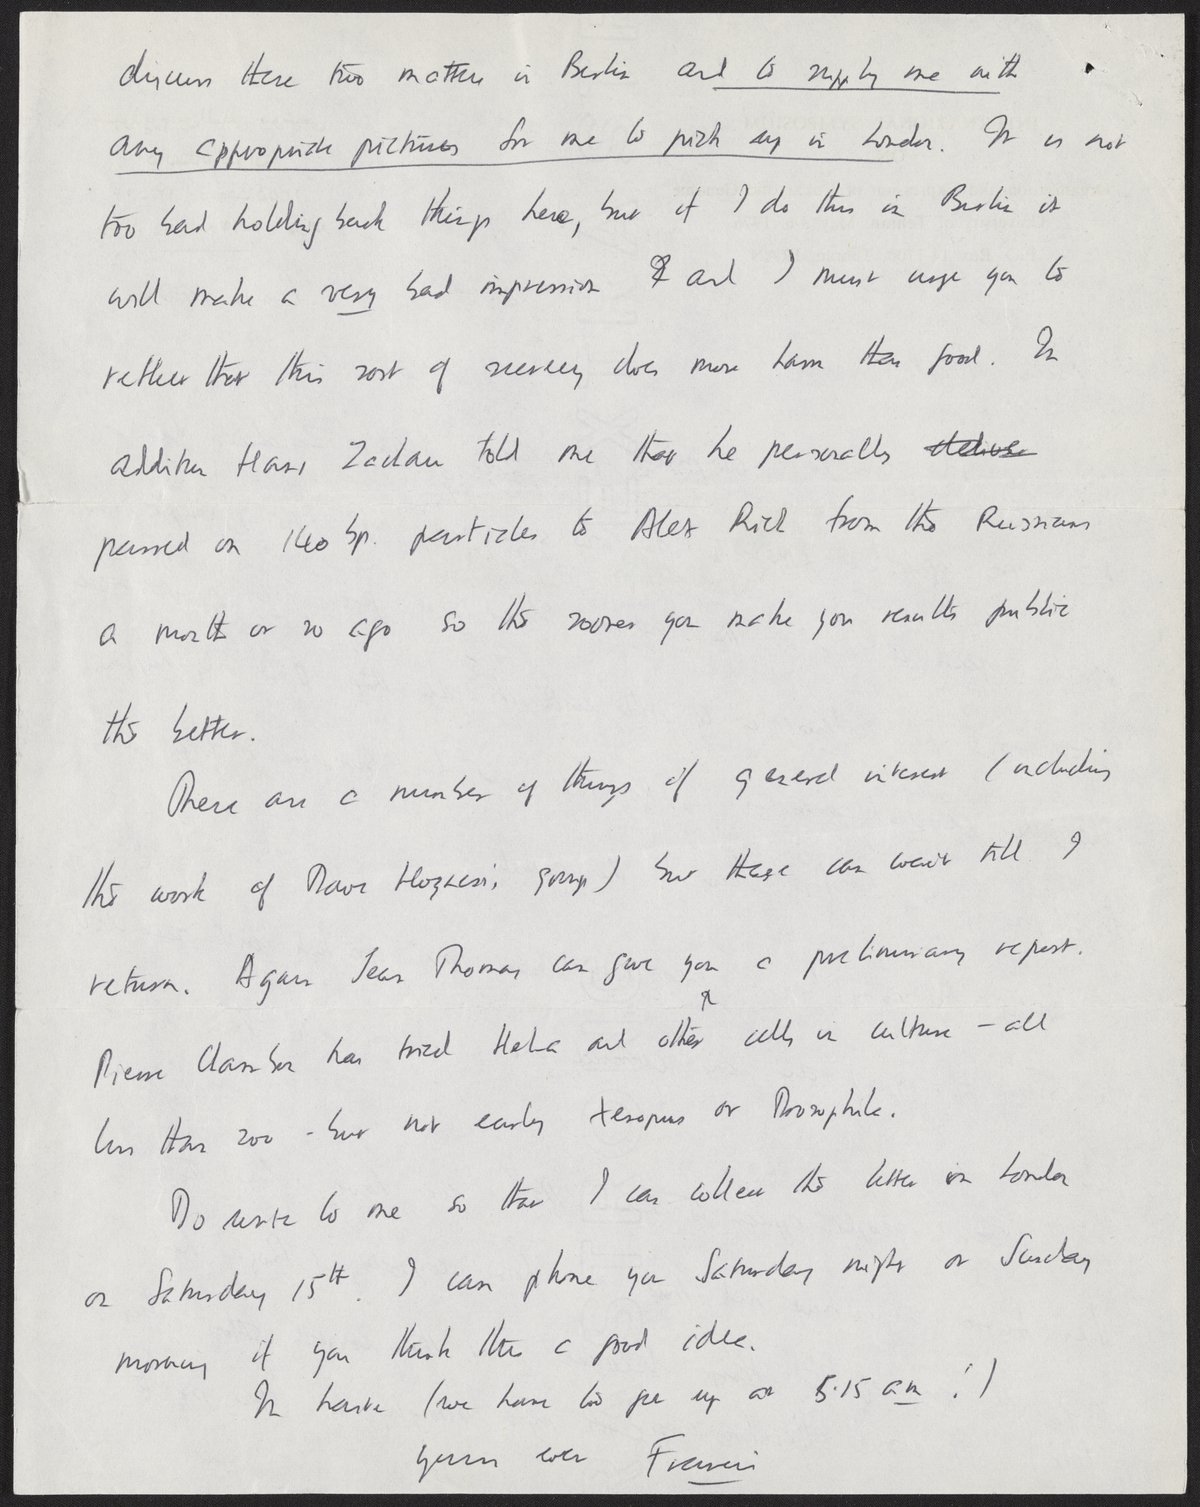 discuss these two matters in Berlin and to supply me with
any appropriate pictures for me to pick up in London. It is not
too bad holding back things here, but if I do this in Berlin it
will make a very bad impression & and I must urge you to
reflect that this sort of secrecy does more harm than good. In
addition Hans Zachau told me that he personally
passed on 140 bp. particles to Alex Rich from the Russians
a month or so ago so the sooner you make your results public
the better.
There are a number of things of general interest (including
the work of Dave Hogness's group) but these can wait till I
return. Again Jean Thomas can give you a preliminary report.
Pierre Chambon has tried HeLa and other cells in culture - all
less than 200 - but not early Xenopus or Drosophila.
Do write to me so that I can collect the letter in London
on Saturday 15th. I can phone you Saturday night or Sunday
morning if you think this a good idea.
In haste (we have to get up at 5.15 am!)
yours ever Francis